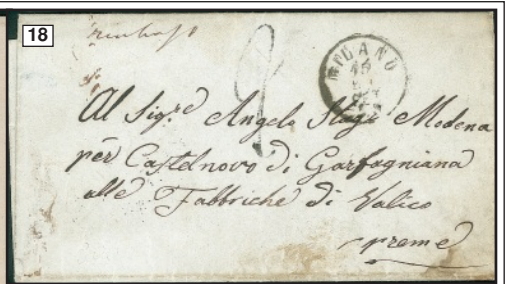 18
MILANO
Al Sig.re Angelo Stagi Modena
per Castelnovo di Garfagniana
alle Fabbriche di Valico
preme